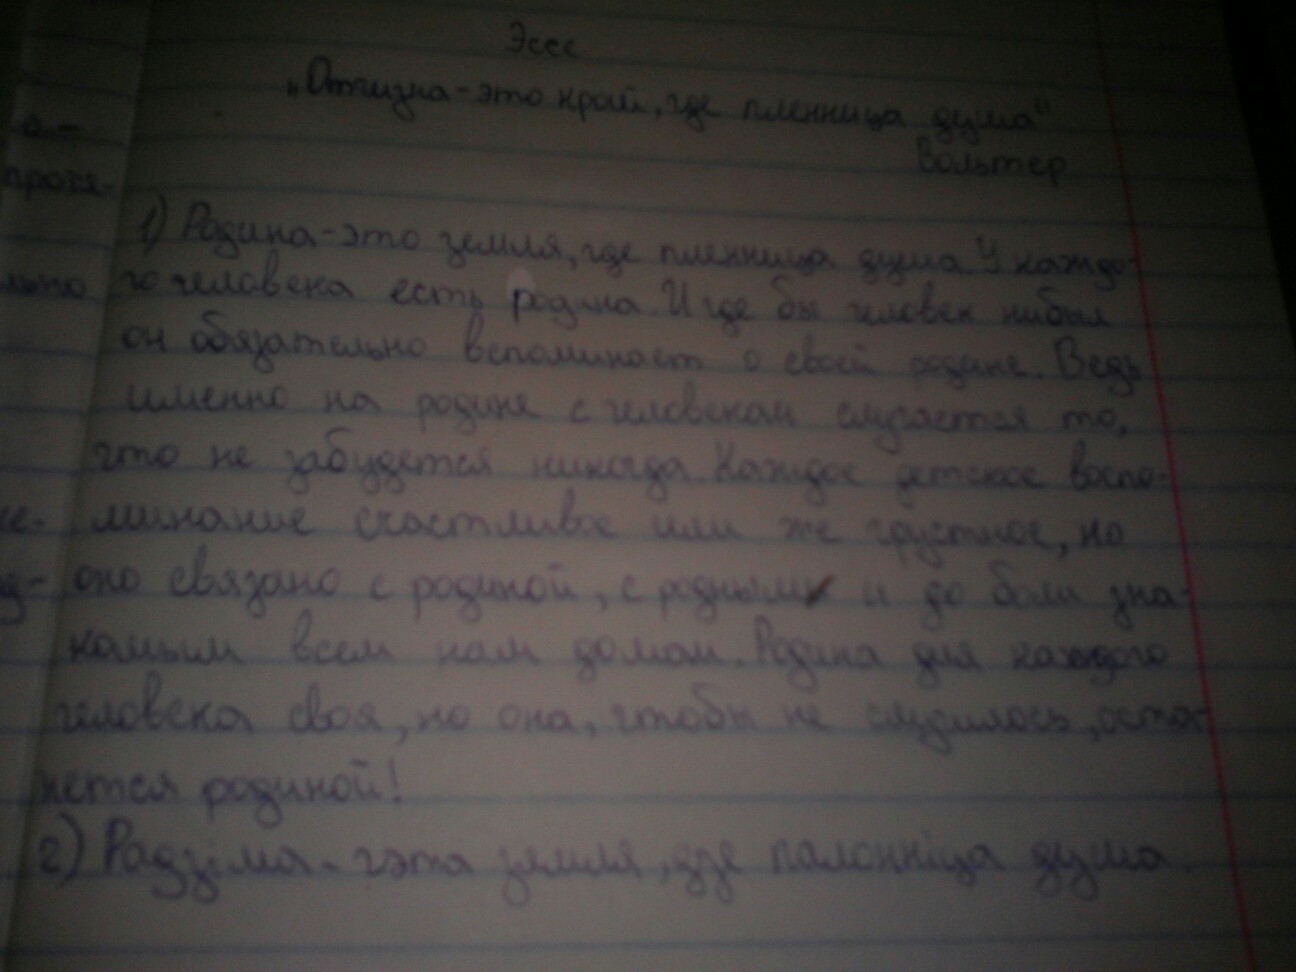 Эссе
„Отчизна-это край, где пленница душа"
Вольтер
1) Родина-это земля, где пленница душа У каждо-
го человека есть родина. И где бы человек нибыл
он обязательно вспоминает о своей родине. Ведь
именно на родине с человеком случается то,
что не забудется никогда Каждое детское воспо-
минание счастливое или же грустное, но
оно связано с родиной, с родным и до боли зна-
комым всем нам домом. Родина для каждого
человека своя, но она, чтобы не случилось, оста-
нется родиной!
2) Радзіма-гэта земля, дзе палонніца душа.